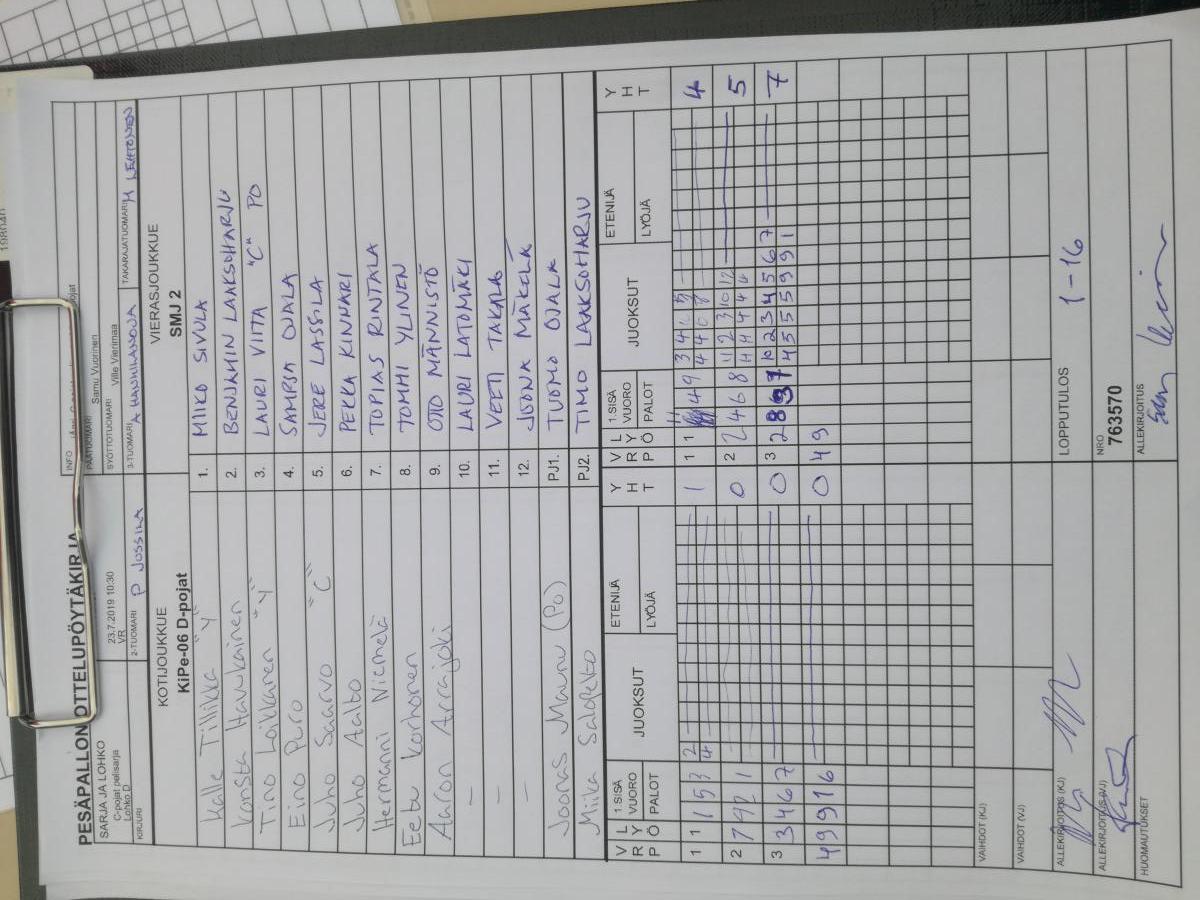 PESÄPALLON OTTELUPÖYTÄKIRJA
SARJA JA LOHKO
C-pojat pelisarja
Lohko D
23.7.2019 10:30
VR
INFO
PÄÄTUOMARI Samu Vuorinen
SYÖTTÖTUOMARI Ville Vierimaa
KIRJURI
2-TUOMARI P JUSSILA
3-TUOMARI
TAKARAJATUOMARI M LEHTONEN
KOTIJOUKKUE
KiPe-06 D-pojat
VIERASJOUKKUE
SMJ 2
Kalle Tillikka "Y" 1. MIIKO SIVULA
Konsta Haukkainen 2. BENJAMIN LAAKSOHARJU
Tino Laikkanen "Y" 3. LAURI VIITA "C" PO
Eino Puro 4. SAMPSA OJALA
Juho Saarvo "C" 5. JERE LASSILA
Juho Aalto 6. PEKKA KINNARI
Hermanni Niemelä 7. TOPIAS RINTALA
Eetu Korhonen 8. TOMMI YLINEN
Aaron Arrajoki 9. OTO MÄNNISTÖ
– 10. LAURI LATOMÄKI
– 11. VEETI TAKALA
– 12. JOONA MÄKELÄ
Joonas Maunu (Po) PJ1. TUOMO OJALA
Miika Salopelto PJ2. TIMO LAAKSOHARJU
V L R Y P Ö 1.SISÄ VUORO PALOT JUOKSUT ETENIJÄ LYÖJÄ Y H T V L R Y P Ö 1.SISÄ VUORO PALOT JUOKSUT ETENIJÄ LYÖJÄ Y H T
1 1 1 5 3 2 4 1 1 4 9 3 4 4
2 7 9 1 0 2 2 4 6 8 11 12 5
3 3 4 6 7 0 3 2 8 9 7 1 2 3 4 5 6 7 7
4 9 9 1 6 0 0 4 9
4 5 5 5 9 9 1
VAIHDOT (KJ)
VAIHDOT (VJ)
ALLEKIRJOITUS (KJ)
LOPPUTULOS 1-16
ALLEKIRJOITUS (VJ)
NRO
763570
HUOMAUTUKSET
ALLEKIRJOITUS